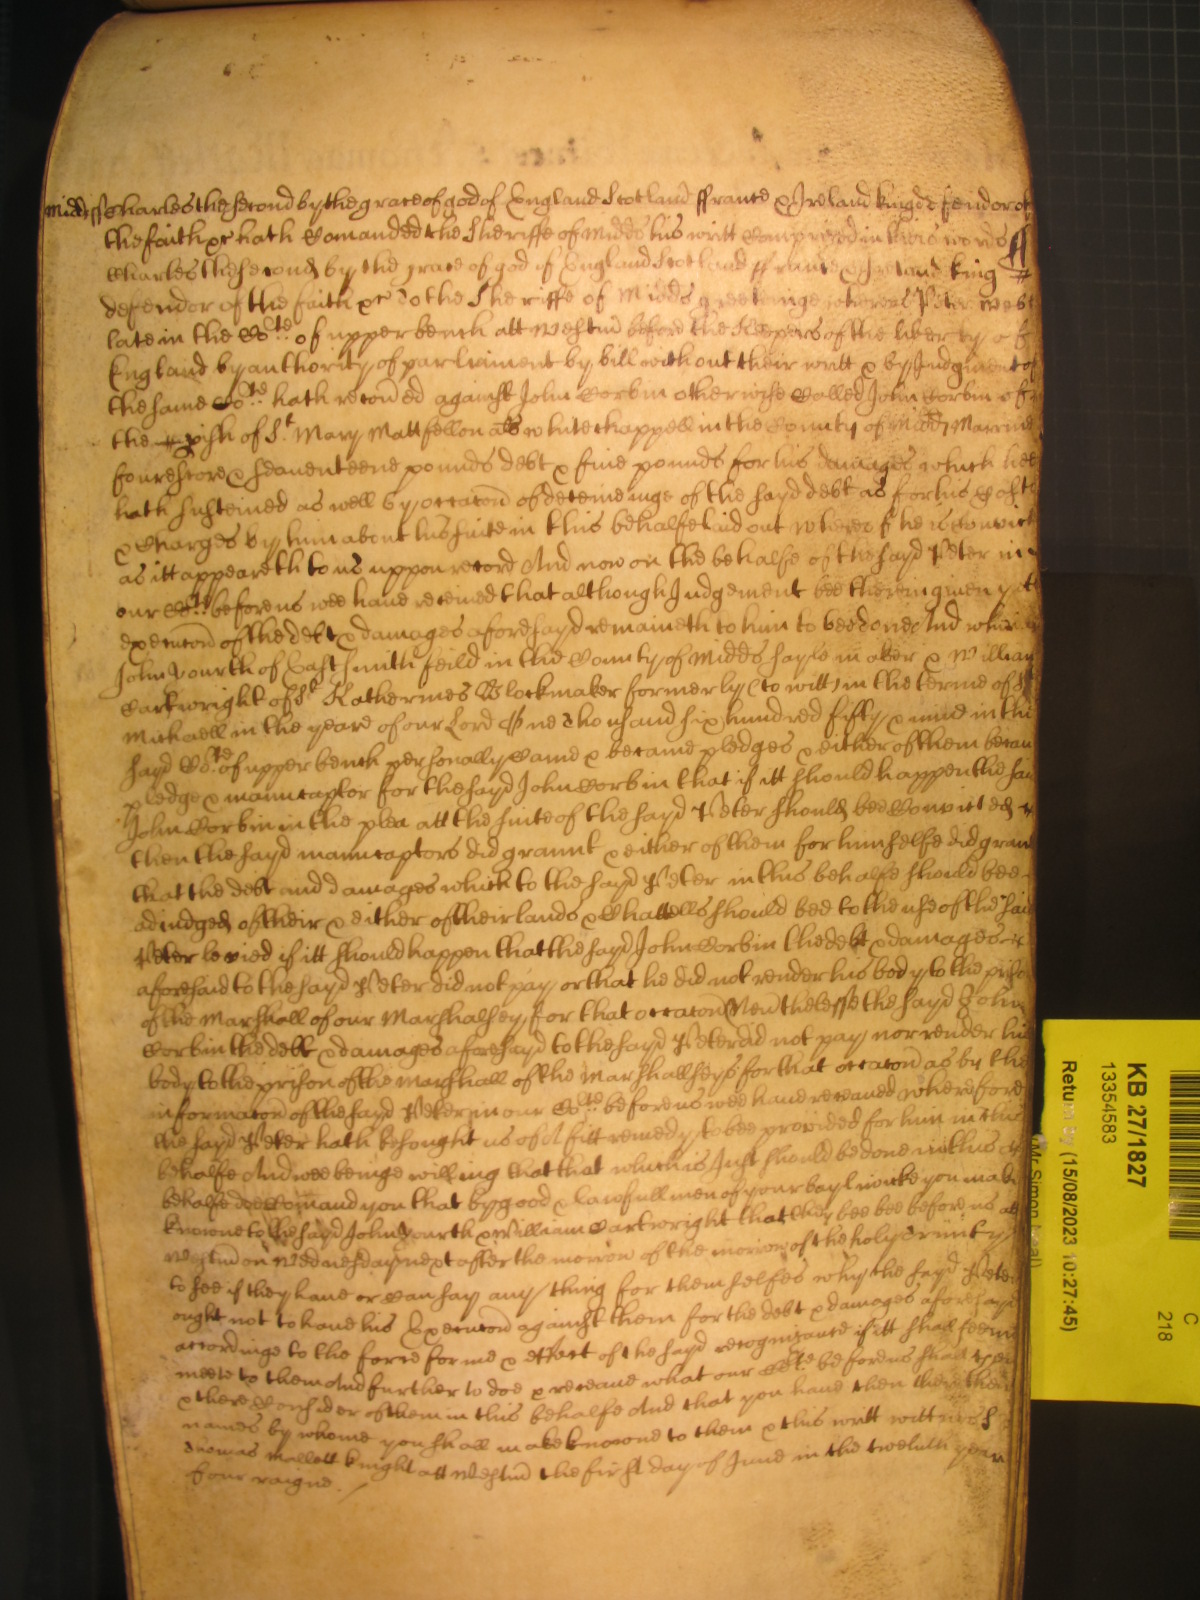 Midds ss Charles the second by the grace of god of England Scotland ffrance & Ireland king defendor of
the faith &c hath Comanded the Sheriffe of Midds his writt Comprized in theis words ss
Charles the second by the grace of god of England Scotland ffrance & Ireland king
defendor of the faith &c To the Sheriffe of Midds greetinge whereas Peter
late in the Cote of upper bench att Westm before the Keepers of the liberty of
England by authority of parliament by bill without their writt & by Judgment of
the same Cote hath recoved against John Corbin otherwise Called John Corbin of
the pish of St Mary Mattfellon als whitechappell in the County of Midd Marriner
fourescore & seaventeene pounds debt & five pounds for his damages which hee
hath susteined as well by occacon of deteineinge of the sayd debt as for his Costs
& Charges by him about his suite in this behalfe laid out whereof he is Convict
as itt appeareth to us uppon record And now on the behalfe of the sayd Peter in
our Cote before us wee have received that although Judgement bee therein given yett
execucon of the debt & damages aforesayd remaineth to him to bee done And whereas
John Yourth of East Smith feild in the County of Midds sayle maker & William
Cartwright of St Katherines Blockmaker formerly (to witt) in the terme of St
Michaell in the yeare of our Lord One thousand six hundred fifty & nine in the
sayd Cote of upper bench personally Came & became pledges & either of them becam
pledge & manucaptor for the sayd John Corbin that if itt should happen the said
John Corbin in the plea att the suite of the sayd Peter should bee Convicted
then the sayd manucaptors did graunt & either of them for himselfe did graunt
that the debt and damages which to the sayd Peter in this behalfe should bee
adiudged of their & either of their lands & Chattells should bee to the use of the said
Peter levied if itt should happen that the sayd John Corbin the debt & damages
aforesaid to the sayd Peter did not pay or that he did not render his body to the prison
of the Marshall of our Marshalsey for that occacon Neverthelesse the sayd John
Corbin the debt & damages aforesayd to the sayd Peter did not pay nor render his
body to the prison of the Marshall of the Marshallseys for that occacon as by the
informacon of the sayd Peter in our Cote before us wee have receaved wherefore
the sayd Peter hath besought us of A fitt remedy to bee provided for him in this
behalfe And wee beinge willing that that which is Just should be done in this
behalfe doe Comand you that by good & lawfull men of your baylywicke you make
knowne to the sayd John Yourth & William Cartwright that they bee bee before us att
Westm on Wednesday next after the morrow of the morrow of the holy Trinity
to see if they have or Can say any thing for themselfes why the sayd Peter
ought not to have his Execucon against them for the debt & damages aforesayd
accordinge to the force forme & effect of the sayd recognizance if itt shall seeme
meete to them And further to doe & receave what our Cote before us shall then
& there Consider of them in this behalfe And that you have then there the
names by whome you shall make knowne to them & this writt wittnes Sr
Thomas Mallett knight att Westm the first day of June in the twelveth yeare
of our raigne.
KB 27/1827
13354583
C
218
Return by (15/08/2023 10:27:45)